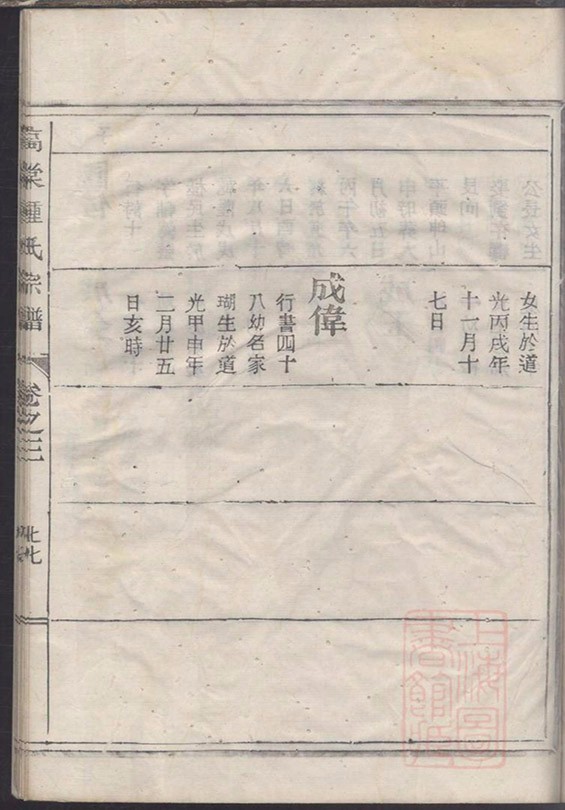 女生於道
光丙戌年
十一月十
七日
成偉
行書四十
八幼名家
瑚生於道
光甲申年
二月廿五
日亥時
棠鍾氏宗譜
卷之三
上海圖書館藏